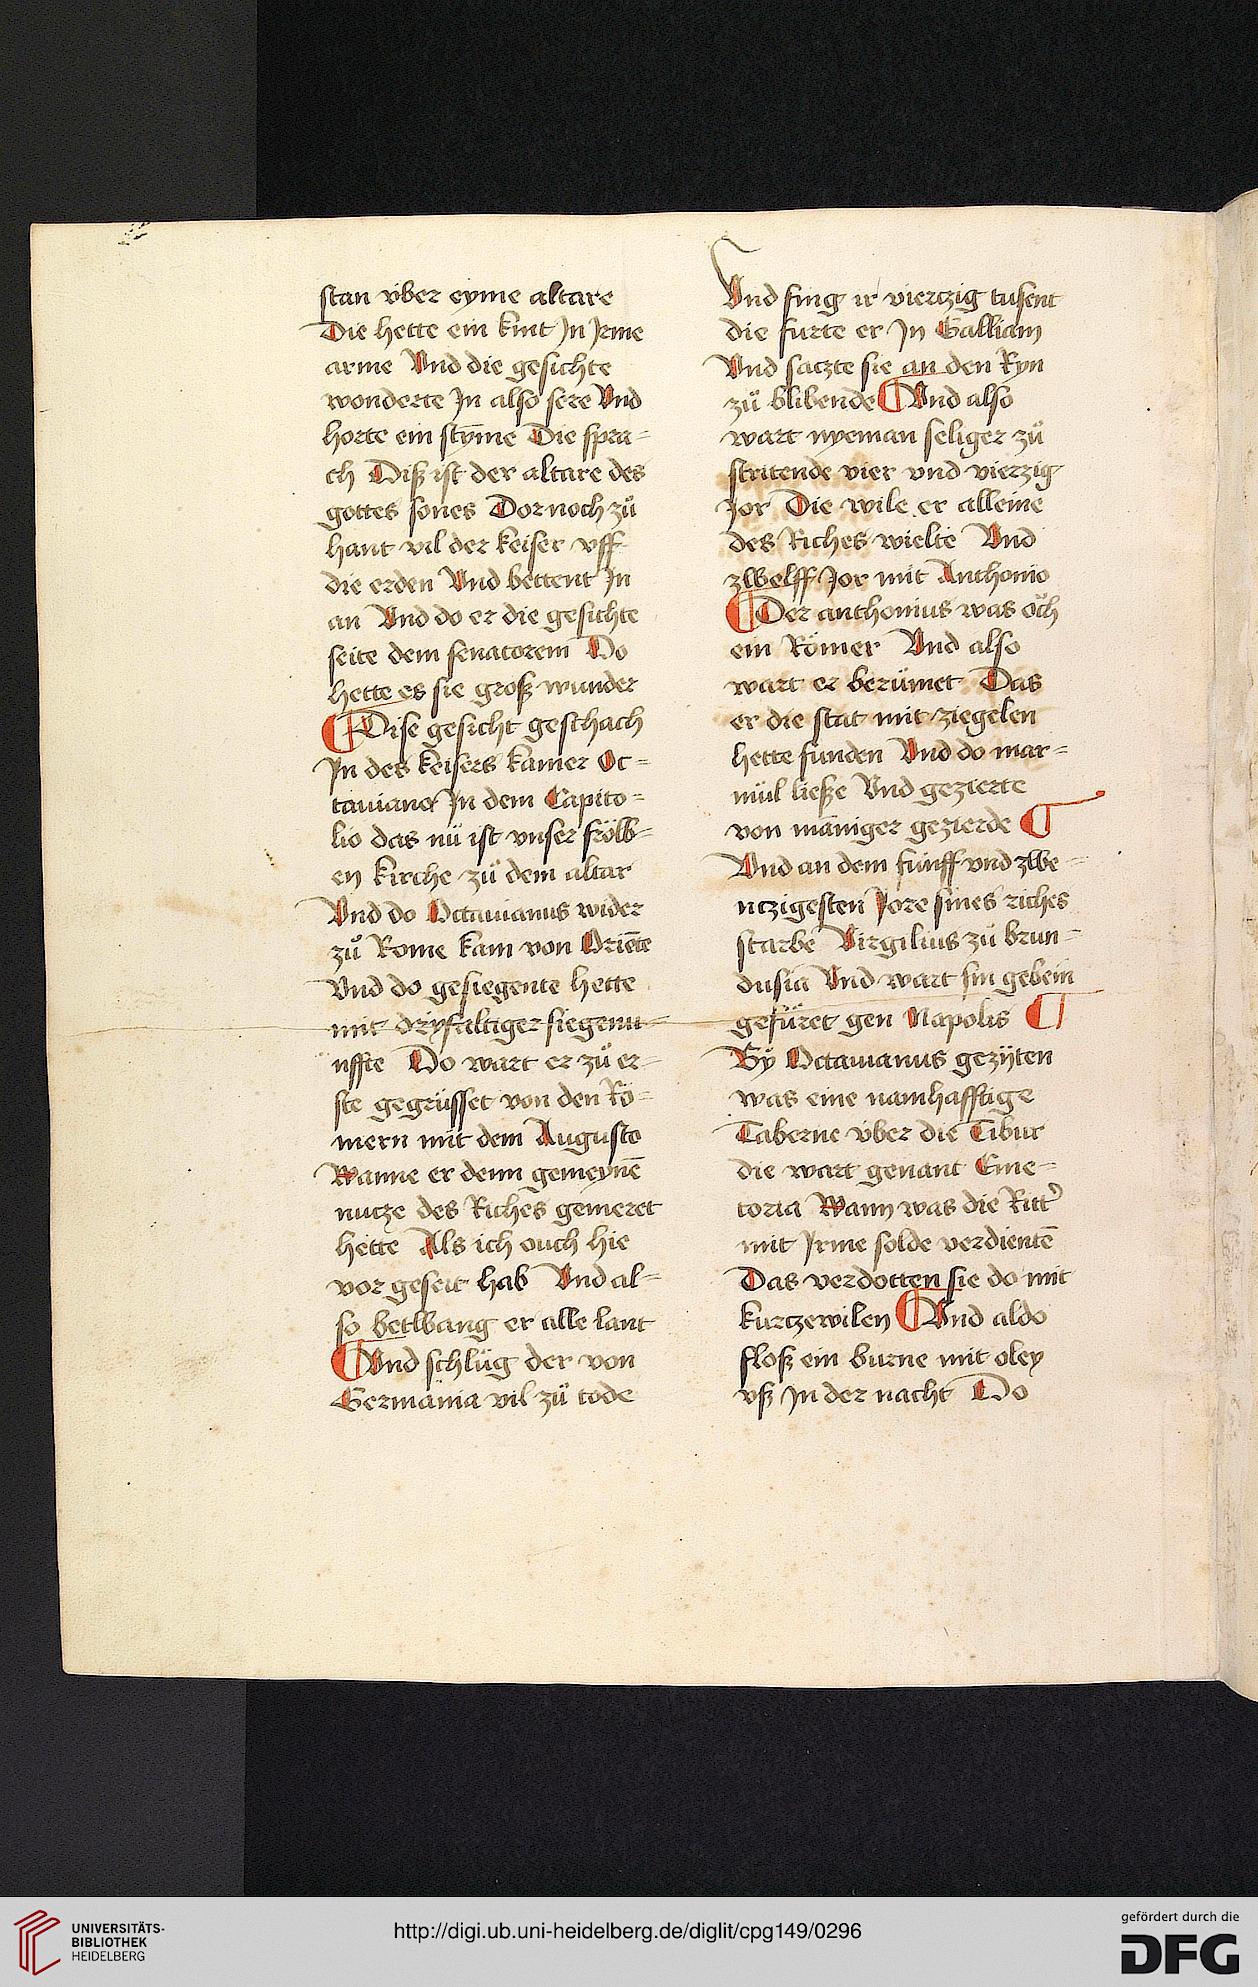 stan vber eyme altare
Die hette ein kint Jn Jrme
arme Vnd die gesichte
wonderte Jn also sere Vnd
horte ein stȳme Die spra=
ch Diß ist der altare des
gottes sones Dornoch zů
hant vil der keiser vff
die erden Vnd bettent Jn
an Vnd do er die gesichte
seite dem senatorem Do
hette es sie groß wunder
¶ Dise gesicht geschach
Jn des keisers kamer Oc=
tauiano Jn dem Capito=
lio das nü ist vnser fröw=
en kirche zů dem altar
Vnd do Octauianus wider
zů Rome kam von Oriēte
Vnd do gesiegente hette
mit dryfaltiger siegenu=
nffte Do wart er zů er=
ste gegrüsset von den Rö=
mern mit dem Augusto
Wanne er denn gemeynē
nutze des Riches gemeret
hette Als ich ouch hie
vor geseit hab Vnd al=
so betwang er alle lant
¶ Vnd schlüg der von
Germania vil zů tode
Vnd fing ir viertzig tusent
die furte er Jn Galliam
Vnd saczte sie an den Ryn
zů blibende ¶ Vnd also
wart nyeman seliger zů
stritende vier vnd vierzig
Jor Die wile er alleine
des Riches wielte Vnd
zwelff Jor mit Anthonio
¶ Der anthonius was öch
ein Römer Vnd also
wart er berümet Das
er die stat mit ziegelen
hette funden Vnd do mar=
mül ließe Vnd gezierte
von maniger gezierde ¶
Vnd an dem fünff vnd zwe=
ntzigesten Jore sines riches
starbe Virgilius zů brun=
dusia Vnd wart sin gebein
gefüret gen Napolis ¶
By Octauianus gezijten
was eine namhafftige
Taberne vber die Tibur
die wart genant Eme=
toria Wann was die Ritt'
mit Jrme solde verdientē
Das verdotten sie do mit
kurtzewilen ¶ Vnd aldo
floß ein burne mit oley
vß Jn der nacht Do
UNIVERSITÄTS-
BIBLIOTHEK
HEIDELBERG
http://digi.ub.uni-heidelberg.de/diglit/cpg149/0296
gefördert durch die
DFG